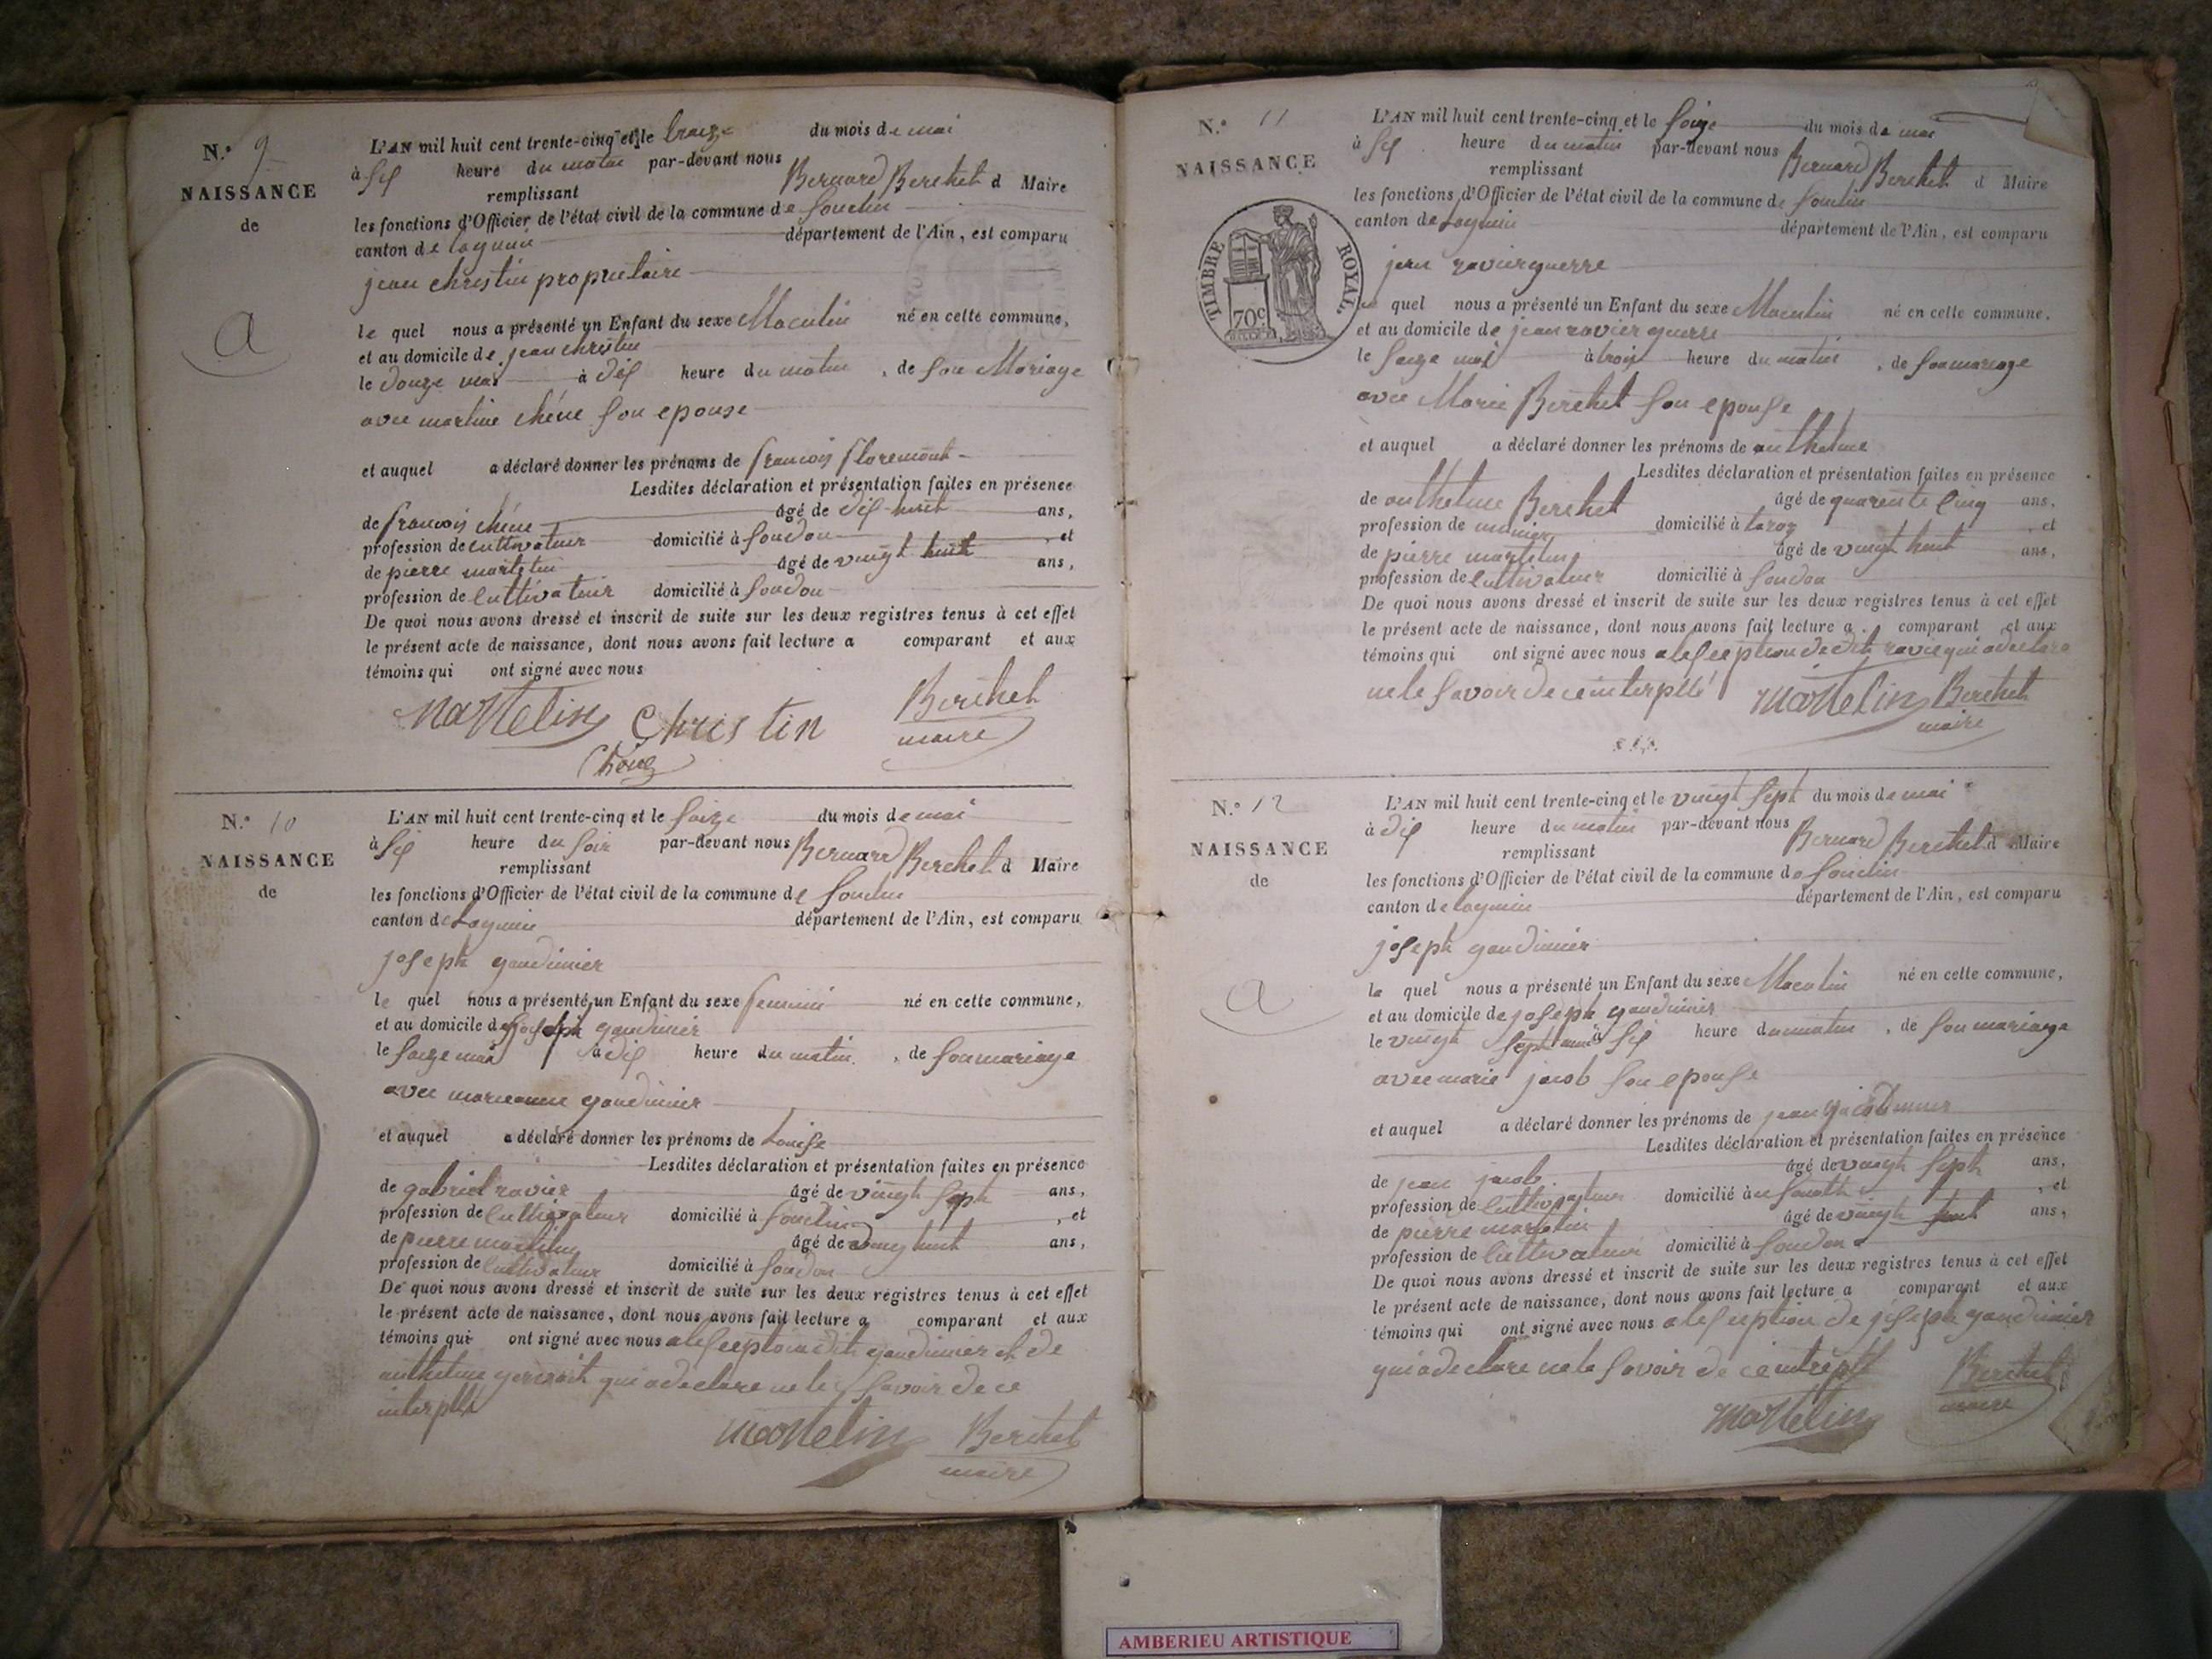 N.° 9
NAISSANCE
de
a
L'AN mil huit cent trente-cinq et le treize du mois de mai
à six heure du matin par-devant nous
Bernard Berthet d Maire
remplissant
les fonctions d'Officier de l'état civil de la commune de Souclin
canton de Lagnieu département de l'Ain, est comparu
jean christin proprietaire
le quel nous a présenté un Enfant du sexe Maculin né en cette commune,
et au domicile de jean christin
le douze mai à dix heure du matin, de son Mariage
avec martine chéne son epouse
et auquel a déclaré donner les prénoms de francois floremont
Lesdites déclaration et présentation faites en présence
de francois chéne âgé de dix huit ans,
profession de cultivateur domicilié à soudon, et
de pierre martelin âgé de vingt huit ans,
profession de cultivateur domicilié à soudon
De quoi nous avons dressé et inscrit de suite sur les deux registres tenus à cet effet
le présent acte de naissance, dont nous avons fait lecture a comparant et aux
témoins qui ont signé avec nous
Martelin Christin Berthet
maire
Chéne
N.° 10
NAISSANCE
de
L'AN mil huit cent trente-cinq et le seize du mois de mai
à six heure du soir par-devant nous Bernard Berthet d Maire
remplissant
les fonctions d'Officier de l'état civil de la commune de Souclin
canton de Lagnieu département de l'Ain, est comparu
joseph gaudinier
le quel nous a présenté un Enfant du sexe feminin né en cette commune,
et au domicile de joseph gaudinier
le seize mai à dix heure du matin, de son mariage
avec marieanne gaudinier
et auquel a déclaré donner les prénoms de Louise
Lesdites déclaration et présentation faites en présence
de gabriel ravier âgé de vingt sept ans,
profession de cultivateur domicilié à souclin, et
de pierre martelin âgé de vingt huit ans,
profession de cultivateur domicilié à soudon
De quoi nous avons dressé et inscrit de suite sur les deux registres tenus à cet effet
le présent acte de naissance, dont nous avons fait lecture a comparant et aux
témoins qui ont signé avec nous a lexseption dit gaudinier et de
anthelme qui a declare ne le savoir de ce
interpllé
Martelin Berthet
maire
N.° 11
NAISSANCE
TIMBRE ROYAL
70c
L'AN mil huit cent trente-cinq et le seize du mois de mai
à six heure du matin par-devant nous Bernard Berthet d Maire
remplissant
les fonctions d'Officier de l'état civil de la commune de Souclin
canton de Lagnieu département de l'Ain, est comparu
jean ravier guerre
le quel nous a présenté un Enfant du sexe Maculin né en cette commune,
et au domicile de jean ravier guerre
le seize mai à trois heure du matin, de son mariage
avec Marie Berthet son epouse
et auquel a déclaré donner les prénoms de anthelme
Lesdites déclaration et présentation faites en présence
de anthelme Berthet âgé de quarente cinq ans,
profession de munier domicilié à, et
de pierre martelin âgé de vingt huit ans,
profession de cultivateur domicilié à soudon
De quoi nous avons dressé et inscrit de suite sur les deux registres tenus à cet effet
le présent acte de naissance, dont nous avons fait lecture a comparant et aux
témoins qui ont signé avec nous a lexseption dedit ravier qui a declare
ne le savoir de ce interpllé Martelin Berthet
maire
N.° 12
NAISSANCE
de
a
L'AN mil huit cent trente-cinq et le vingt sept du mois de mai
à dix heure du matin par-devant nous Bernard Berthet d Maire
remplissant
les fonctions d'Officier de l'état civil de la commune de Souclin
canton de Lagnieu département de l'Ain, est comparu
joseph gaudinier
le quel nous a présenté un Enfant du sexe Maculin né en cette commune,
et au domicile de joseph gaudinier
le vingt sept mai à six heure du matin, de son mariage
avec marie jacob son epouse
et auquel a déclaré donner les prénoms de jean
Lesdites déclaration et présentation faites en présence
de jean jacob âgé de vingt sept ans,
profession de cultivateur domicilié à, et
de pierre martelin âgé de vingt huit ans,
profession de cultivateur domicilié à soudon
De quoi nous avons dressé et inscrit de suite sur les deux registres tenus à cet effet
le présent acte de naissance, dont nous avons fait lecture a comparant et aux
témoins qui ont signé avec nous a lexseption de joseph gaudinier
qui a declare ne le savoir de ce intrepllé Berthet
maire
Martelin
AMBERIEU ARTISTIQUE